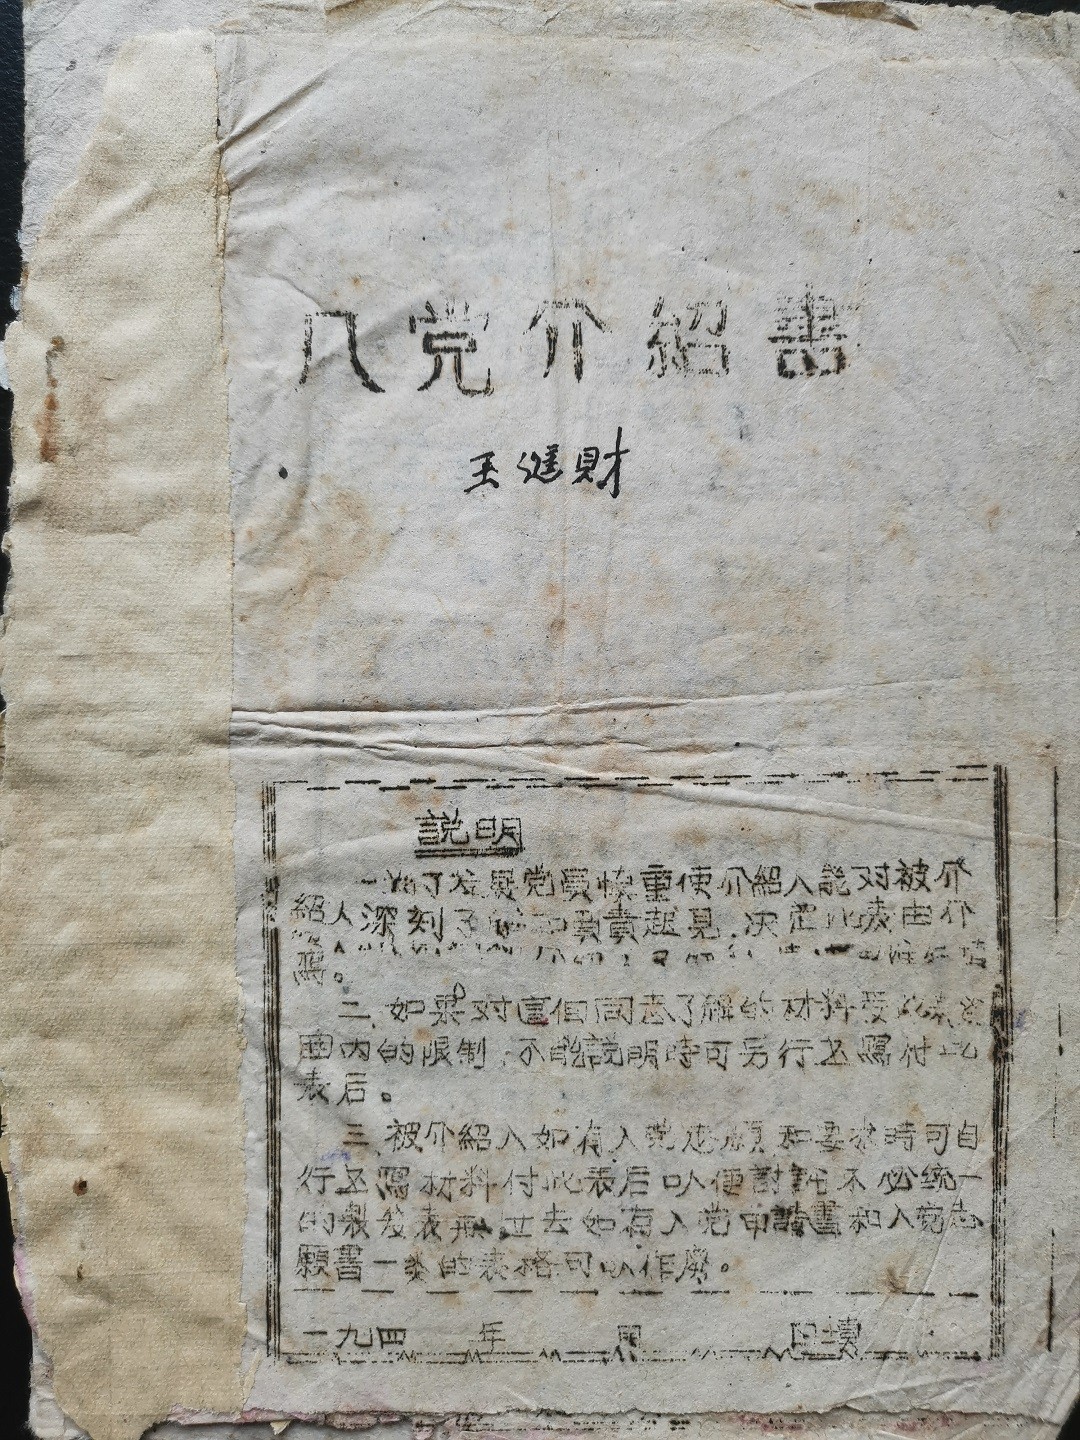 入党介紹書
王進財
説明
一為了发展党員慎重使介紹人能对被介
紹人深刻了解和負責起見、决定此表由介
寫。
二、如果对這個同志了解的材料受此表範
圍内的限制、不能説明時可另行丞寫付此
表后。
三、被介紹人如有入党志願和要求時可自
行丞寫材料付此表后以便討論不必统一
的製发表冊、过去如有入党申請書和入党志
願書一类的表格可以作废。
一九四 年 月 日填